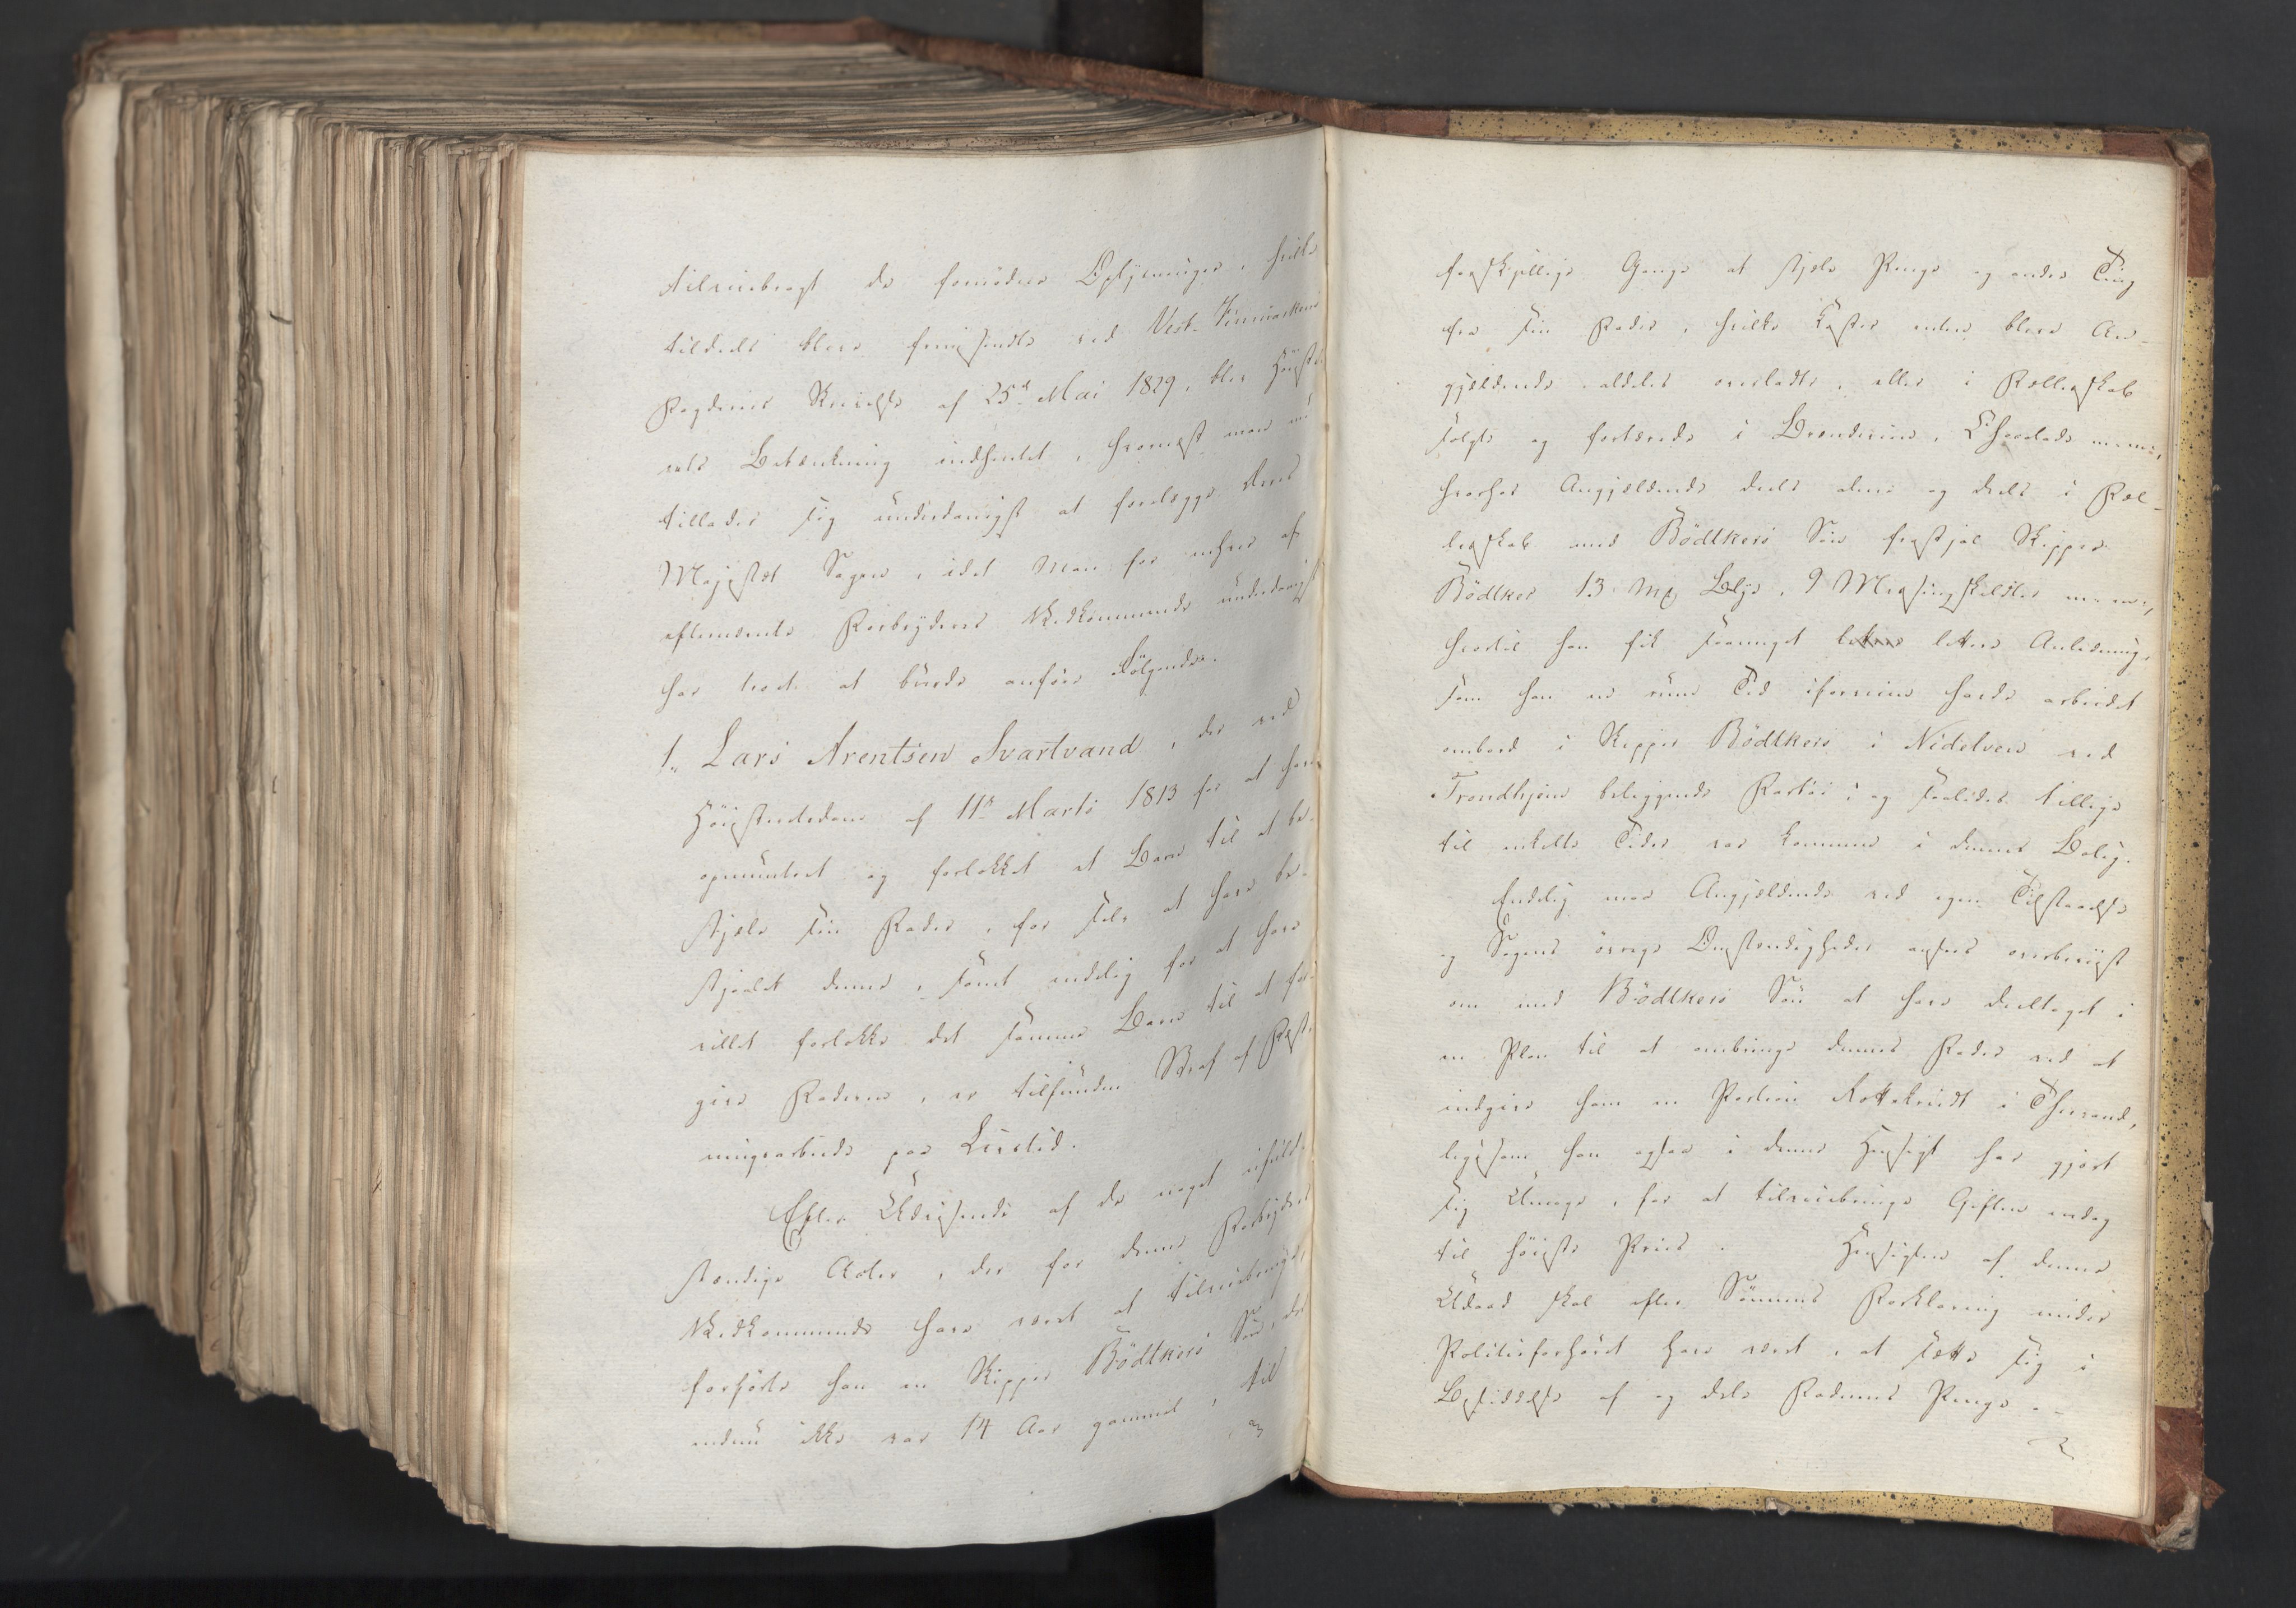 tilveiebragt de fornødne Oplysninger, hvilke
tildeels bleve fremsendte ved Vest-Finmarkens
Fogderies Skrivelse af 25de Mai 1829, blev Høieste-
rets Betænkning indhentet, hvornæst man nu
tillader sig underdanigst at forelægge Deres
Majestæt Sagen, idet Man for enhver af
ofternævnte Forbryderes Vedkommende underdanigst
har troet at burde anføre Følgende.
1., Lars Arentsen Svartvand, der ved
Høiesteretsdom af 11te Marts 1813 for at have
opmuntret og forlokket et Barn til at be-
stjæle sin Fader, for selv at have be-
stjaalet denne, samt endelig for at have
villet forlokke det samme Barn til at for-
give Faderen, er tilfunden Straf af Fæst-
ningsarbeide paa Livstid.
Efter Udvisende af de noget ufuld-
stændige Acter, der for denne Forbryders
Vedkommende have været at tilveiebringe,
forførte han en Skipper Bödtkers Søn, der
endnu ikke var 14 Aar gammel, til
forskjellige Gange at stjæle Penge og andre Ting
fra sin Fader, hvilke Koster enten bleve An-
gjældende aldeles overladte, eller i Fællesskab
solgte og fortærede i Brændeviin, Chocolade m. m.,
hvorhos Angjældende deels alene og deels i Fæl-
lesskab med Bödtkers Søn frastjal Skipper
Bödtker 13 Mk Blye, 9 Messingskildter m. m.,
hvortil han fik saameget lettere Anledning,
som han en rum Tid iforveien havde arbeidet
ombord i Skipper Bödtkers i Nidelven ved
Trondhjem beliggende Fartøi, og saaledes tillige
til enkelte Tider var kommen i dennes Bolig.
Endelig maa Angjældende ved egen Tilstaaelse
og Sagens øvrige Omstændigheder ansees overbeviist
om med Bödtkers Søn at have deeltaget i
en Plan til at ombringe dennes Fader ved at
indgive ham en Portion Rottekrudt i Theevand,
ligesom han ogsaa i denne Hensigt har gjort
sig Umage, for at tilveiebringe Giften endog
til høieste Priis. Hensigten af denne
Udaad skal efter Sønnens Forklaring under
Politieforhøret have været, at sætte sig i
Besiddelse af og dele Faderens Penge. -